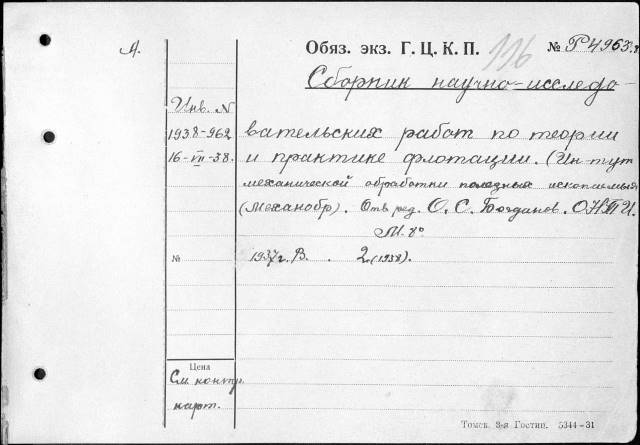 А.
Обяз. экз. Г. Ц. К. П. 116 № Р4963
Сборник научно-исследо-
Инв. N
1938-962
16-VII-38.
вательских работ по теории
и практике флотации. (Ин-тут
механической обработки полезных ископаемых
(Механобр). Отв. ред. О. С. Богданов. ОНТИ.
М. 8°
№ 1937 г. В. . 2. (1938).
Цена
См. контр.
карт.
Томск. 3-я Гостип. 5344-31